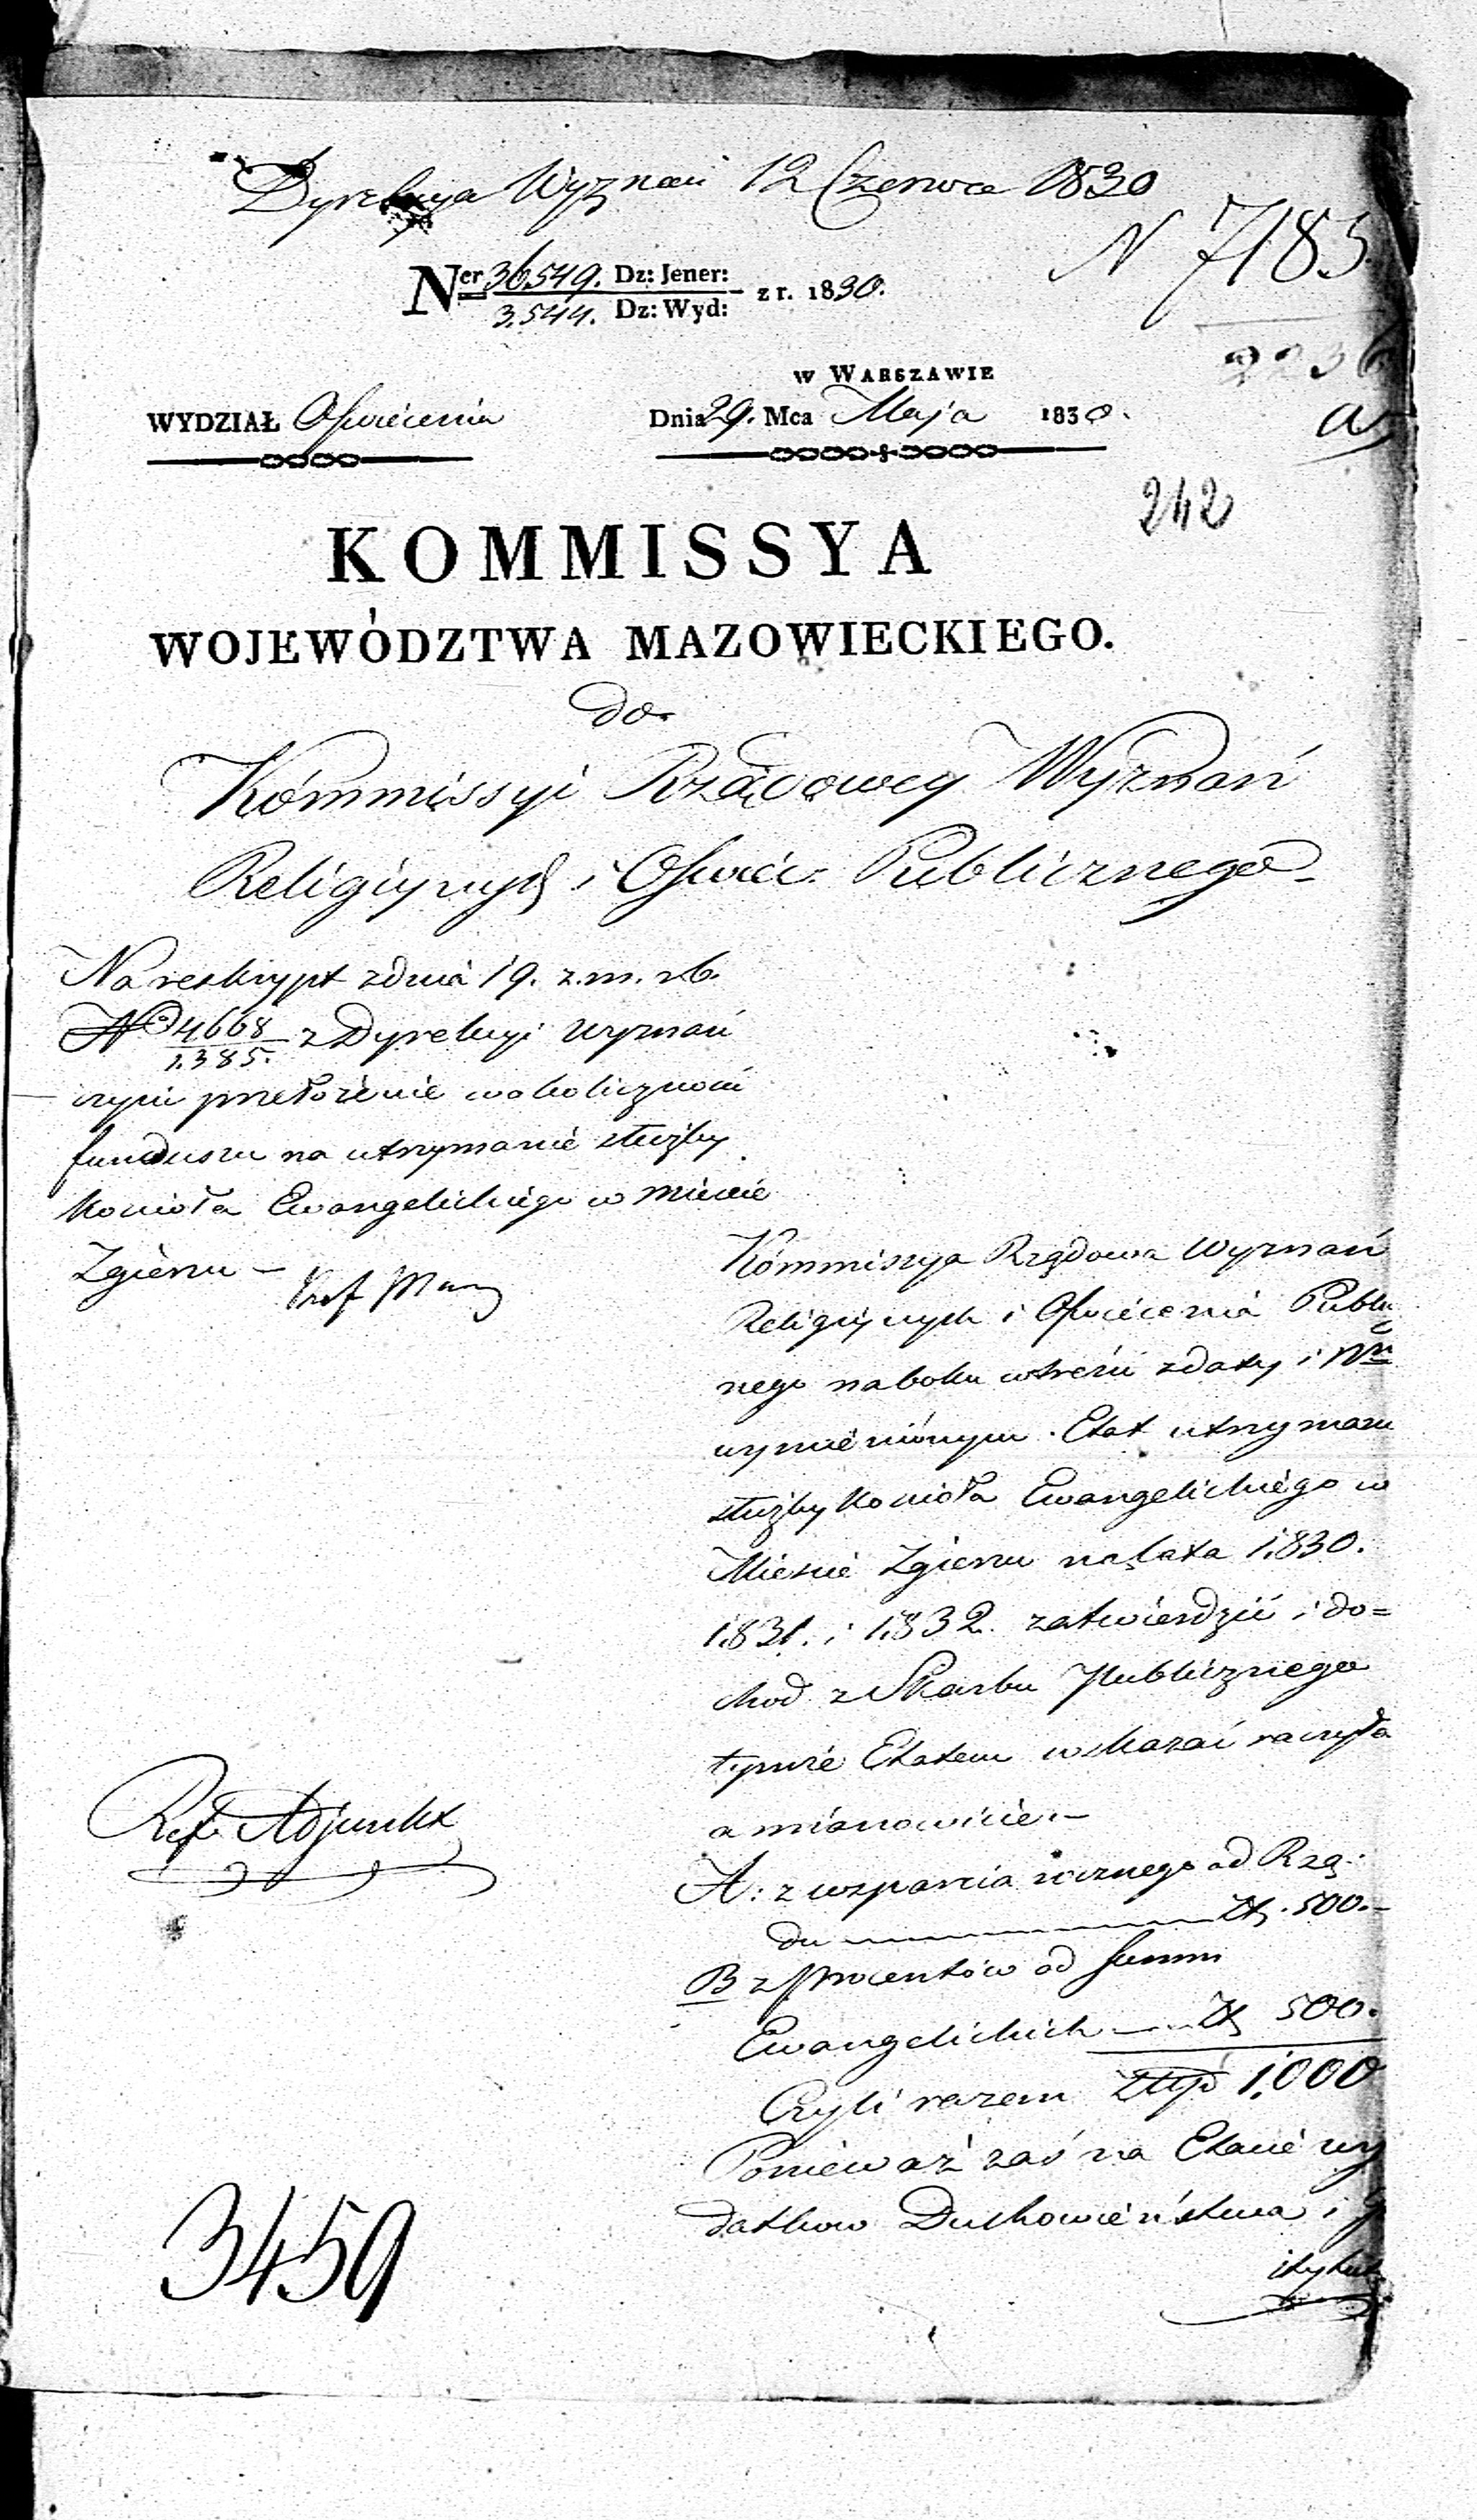 Dyrekcya Wyznań 12 Czerwca 1830
N 7183
Ner 36549. Dz: Jener: z r. 1830.
3.544. Dz: Wyd:
2236
w Warszawie
WYDZIAŁ Oświecenia
Dnia 29. Mca Maja 1830.
242
KOMMISSYA
WOJEWÓDZTWA MAZOWIECKIEGO.
do
Kommissyi Rządowey Wyznań
Religiynych i Oświec: Publicznego
Na reskrypt z dnia 19. z. m. r. b.
No 4668 z Dyrekcyi Wyznań
1.385.
czyni przełożenie w okoliczności
funduszu na utrzymanie służby
Kościoła Ewangelickiego w mieście
Zgierzu –
Kommissya Rządowa Wyznań
Religiynych i Oświecenia Publi
nego na boku w treści z daty i Nru
wymienionym Etat utrzyman
służby Kościoła Ewangelickiego w
Mieście Zgierzu na lata 1830.
1831. i 1832. zatwierdzić i do=
chod z Skarbu Publicznego
tymże Etatem wskazać raczyła
a mianowicie. –
A: z wsparcia rocznego od Rzą:
du Zł. 500. –
B z procentów od Summ
Ewangelickich Zł 500.
Czyli razem Złp 1.000
Ponieważ zaś na Etacie wy
datkow Duchowieństwa i
Ref. Adjunkt
3459